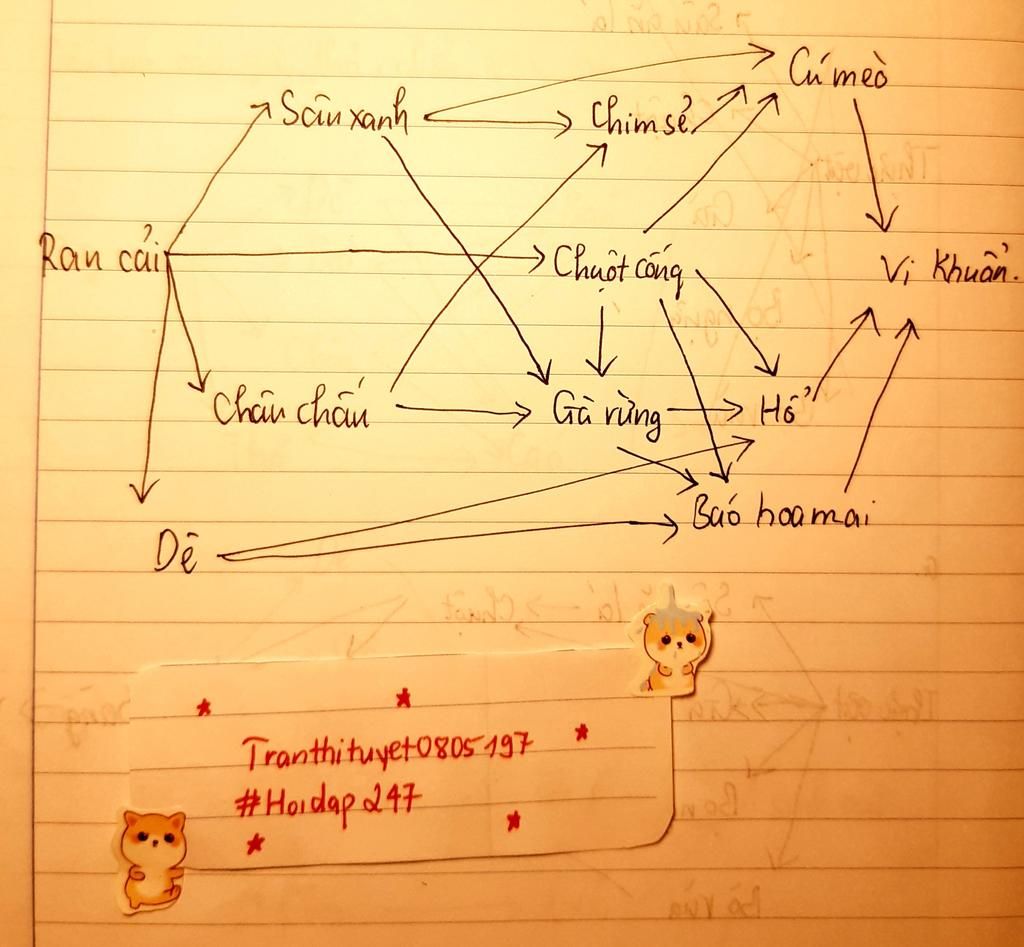 Cú mèo
Sâu xanh
Chim sẻ
Rau cải
Chuột cống
Vi khuẩn.
Châu chấu
Gà rừng
Hổ
Báo hoa mai
Dê
Tranthituyet0805197
#Hoidap247